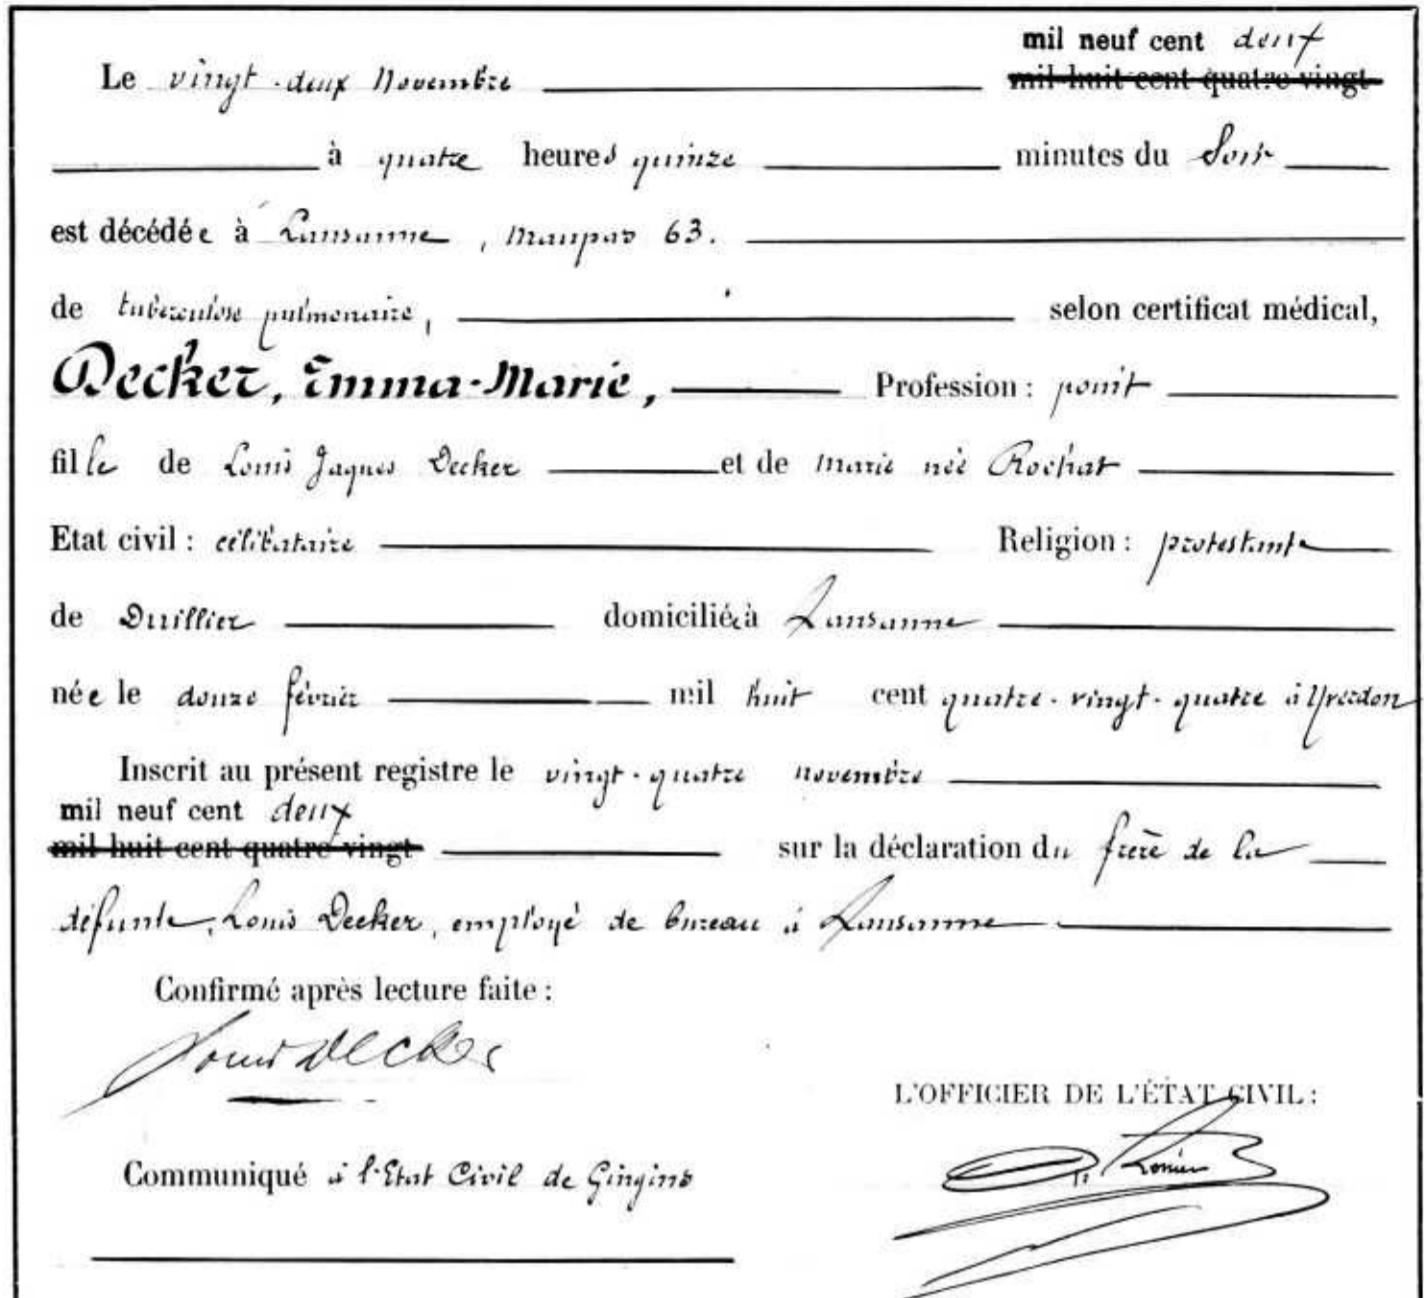 mil neuf cent deux
Le vingt-deux Novembre mil huit cent quatre-vingt
à quatre heures quinze minutes du Soir
est décédée à Lausanne, Maupas 63.
de tuberculose pulmonaire, selon certificat médical,
Decker, Emma-Marie, Profession : point
fille de Louis Jaques Decker et de Marie née Rochat
Etat civil : célibataire Religion : protestante
de Duillier domiciliée à Lausanne
née le douze février mil huit cent quatre-vingt-quatre à Yverdon
Inscrit au présent registre le vingt-quatre novembre
mil neuf cent deux
mil huit cent quatre-vingt sur la déclaration du frère de la
défunte, Louis Decker, employé de bureau à Lausanne
Confirmé après lecture faite :
Louis Decker
L'OFFICIER DE L'ÉTAT CIVIL :
Communiqué à l'Etat Civil de Gingins